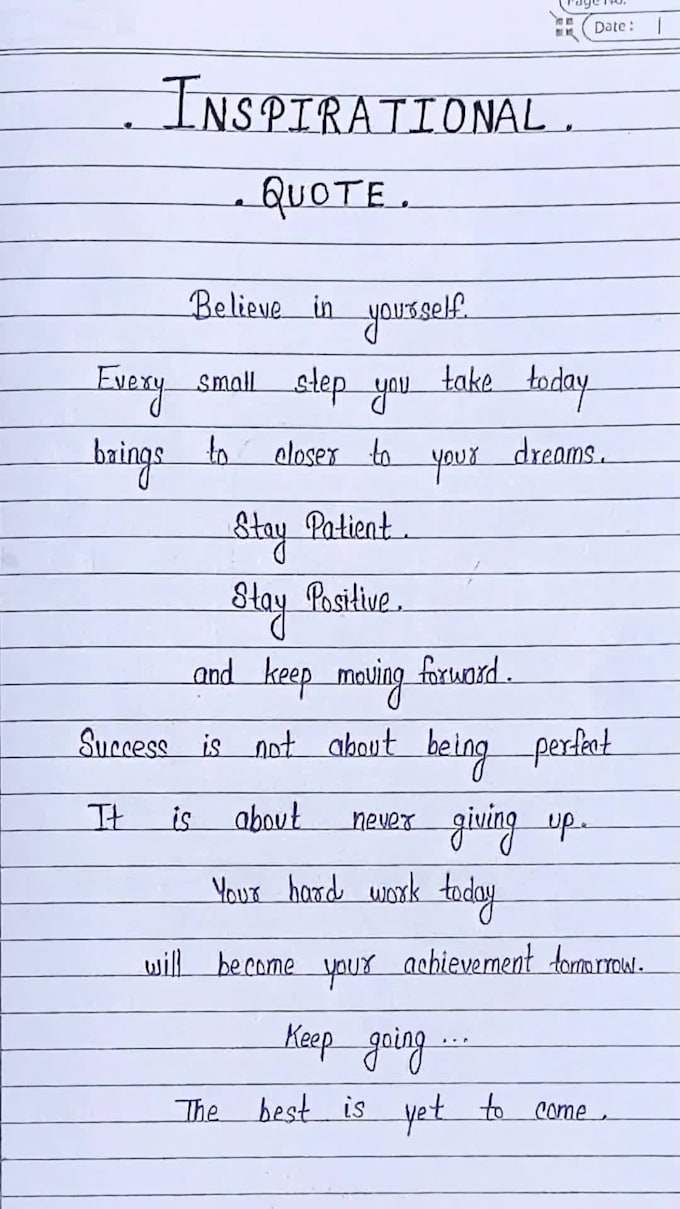 Page No.
Date:
. INSPIRATIONAL .
. QUOTE .
Believe in yourself.
Every small step you take today
brings to closer to your dreams.
Stay Patient.
Stay Positive.
and keep moving forward.
Success is not about being perfect
It is about never giving up.
Your hard work today
will become your achievement tomorrow.
Keep going ...
The best is yet to come.